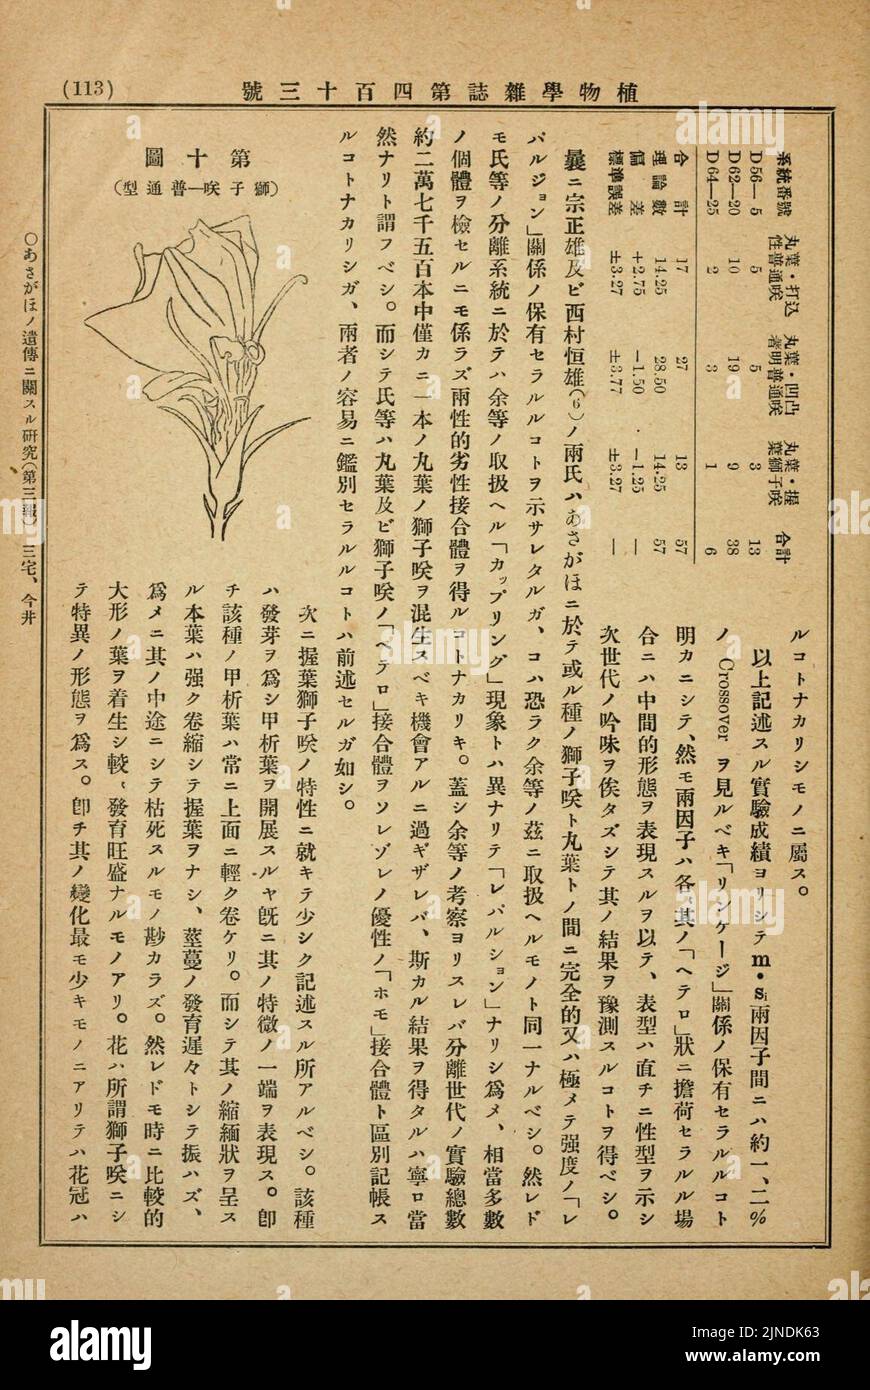 植物學雜誌第四百十三號
(113)
系統番號　丸葉・打込性普通咲　丸葉・凹凸著明普通咲　丸葉・握葉獅子咲　合計
D 56— 5　5　5　3　13
D 62—20　10　19　9　38
D 64—25　2　3　1　6
合計　17　27　13　57
理論數　14.25　28.50　14.25　57
偏差　+2.75　−1.50　−1.25　—
標準誤差　±3.27　±3.77　±3.27　—
ルコトナカリシモノニ屬ス。
以上記述スル實驗成績ヨリシテ m・si 兩因子間ニハ約一、二%
ノ Crossover ヲ見ルベキ「リンケージ」關係ノ保有セラルルコト
明カニシテ、然モ兩因子ハ各〻其ノ「ヘテロ」狀ニ擔荷セラルル場
合ニハ中間的形態ヲ表現スルヲ以テ、表型ハ直チニ性型ヲ示シ
次世代ノ吟味ヲ俟タズシテ其ノ結果ヲ豫測スルコトヲ得ベシ。
曩ニ宗正雄及ビ西村恒雄(6)ノ兩氏ハあさがほニ於テ或ル種ノ獅子咲ト丸葉トノ間ニ完全的又ハ極メテ强度ノ「レ
パルジョン」關係ノ保有セラルルコトヲ示サレタルガ、コハ恐ラク余等ノ茲ニ取扱ヘルモノト同一ナルベシ。然レド
モ氏等ノ分離系統ニ於テハ余等ノ取扱ヘル「カップリング」現象トハ異ナリテ「レパルション」ナリシ爲メ、相當多數
ノ個體ヲ檢セルニモ係ラズ兩性的劣性接合體ヲ得ルコトナカリキ。蓋シ余等ノ考察ヨリスレバ分離世代ノ實驗總數
約二萬七千五百本中僅カニ一本ノ丸葉ノ獅子咲ヲ混生スベキ機會アルニ過ギザレバ、斯カル結果ヲ得タルハ寧ロ當
然ナリト謂フベシ。而シテ氏等ハ丸葉及ビ獅子咲ノ「ヘテロ」接合體ヲソレゾレノ優性ノ「ホモ」接合體ト區別記帳ス
ルコトナカリシガ、兩者ノ容易ニ鑑別セラルルコトハ前述セルガ如シ。
第十圖
(獅子咲—普通型)
次ニ握葉獅子咲ノ特性ニ就キテ少シク記述スル所アルベシ。該種
ハ發芽ヲ爲シ甲析葉ヲ開展スルヤ旣ニ其ノ特徵ノ一端ヲ表現ス。卽
チ該種ノ甲析葉ハ常ニ上面ニ輕ク卷ケリ。而シテ其ノ縮緬狀ヲ呈ス
ル本葉ハ强ク卷縮シテ握葉ヲナシ、莖蔓ノ發育遲々トシテ振ハズ、
爲メニ其ノ中途ニシテ枯死スルモノ尠カラズ。然レドモ時ニ比較的
大形ノ葉ヲ着生シ較〻發育旺盛ナルモノアリ。花ハ所謂獅子咲ニシ
テ特異ノ形態ヲ爲ス。卽チ其ノ變化最モ少キモノニアリテハ花冠ハ
○あさがほノ遺傳ニ關スル硏究(第三報)　三宅、今井
alamy
Image ID: 2JNDK63
www.alamy.com